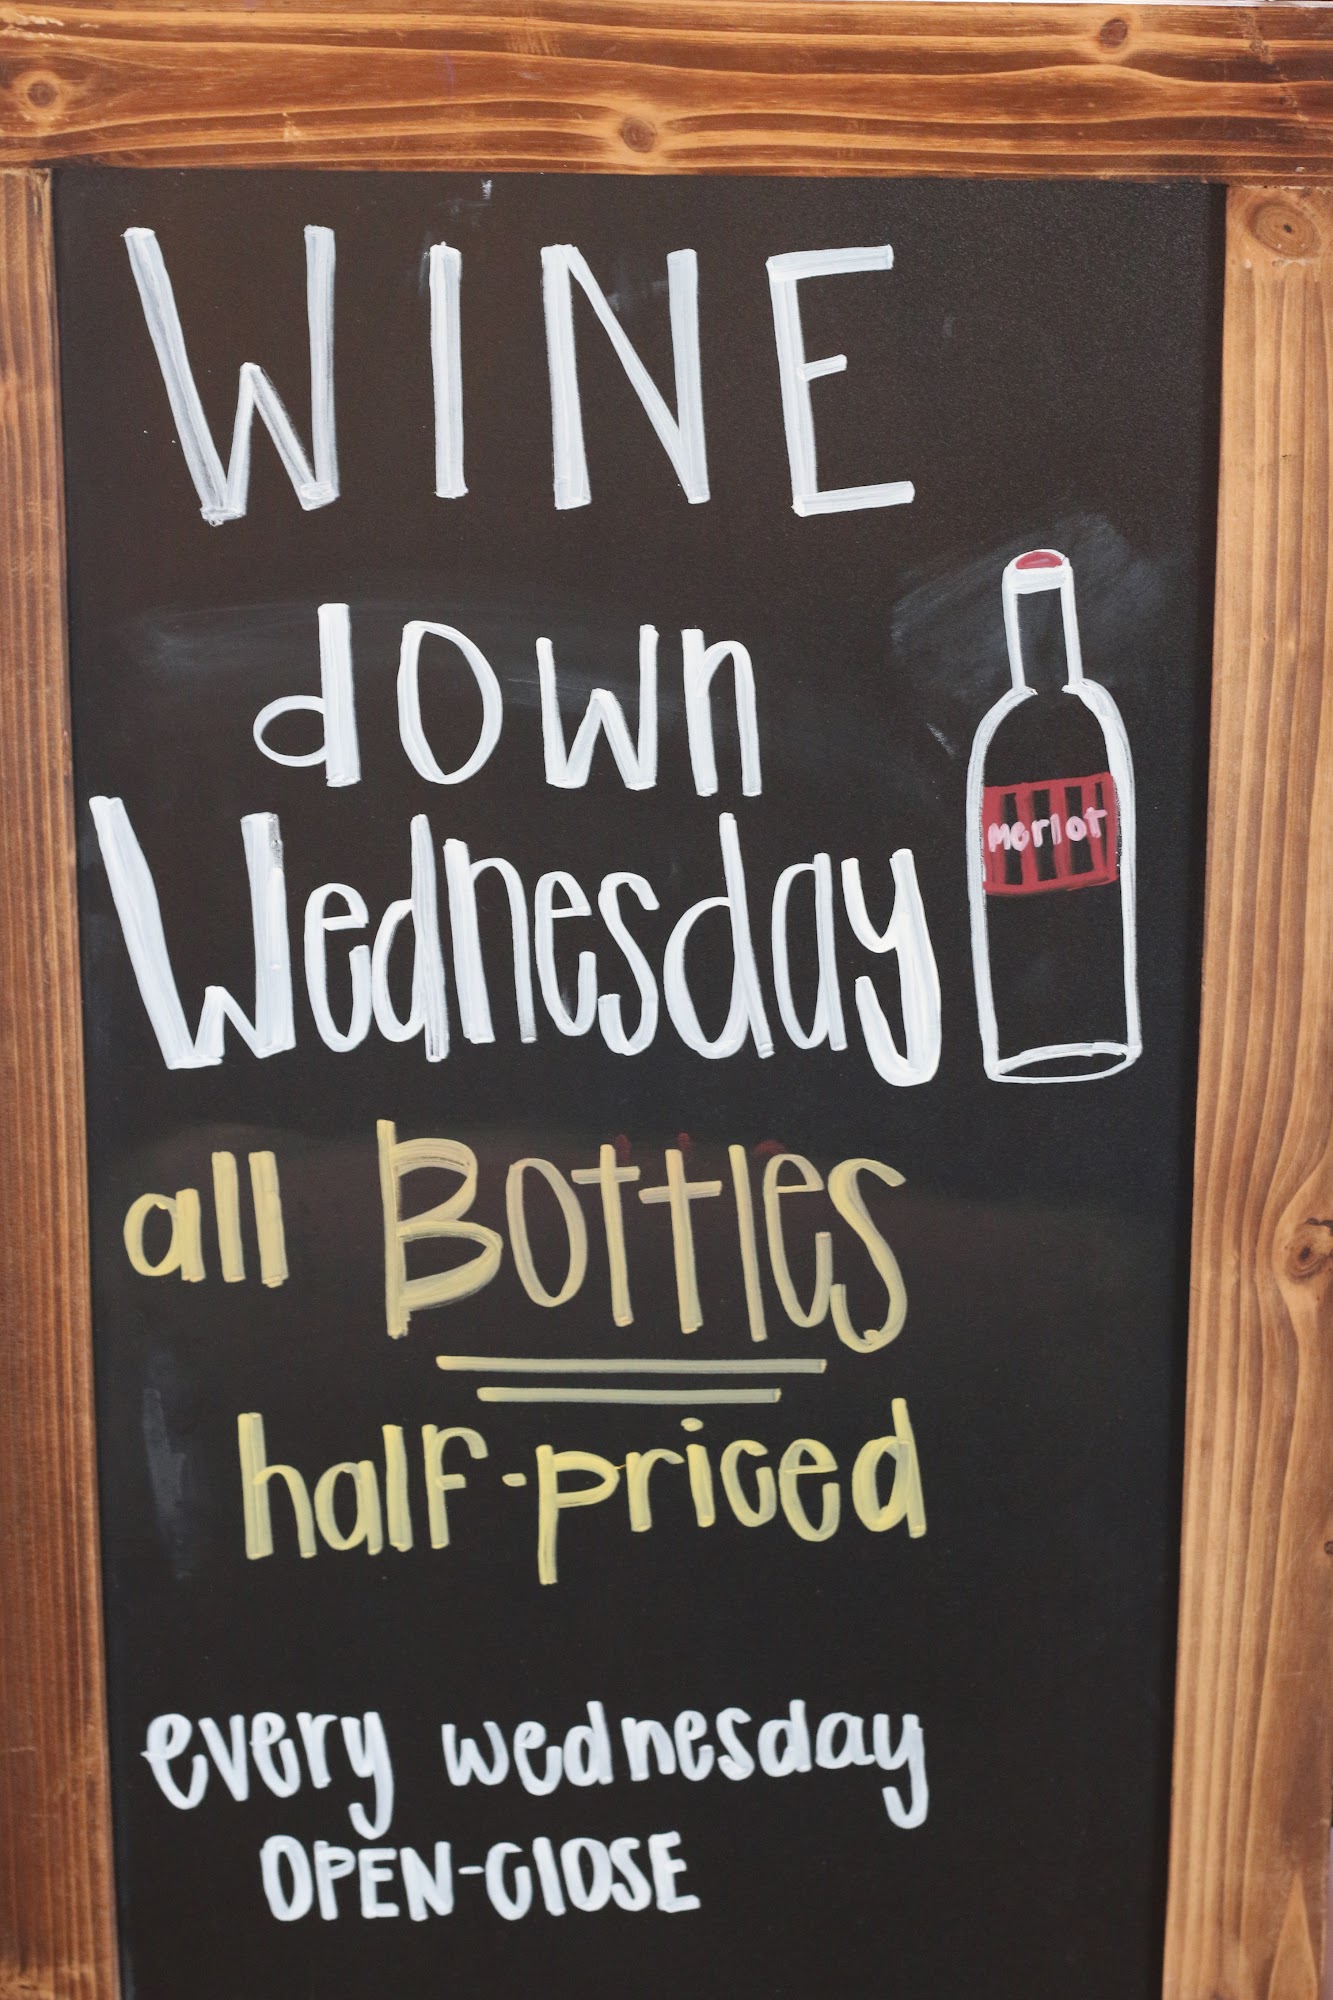 WINE
down
Wednesday
Merlot
all Bottles
half-priced
every wednesday
OPEN-ClOSE